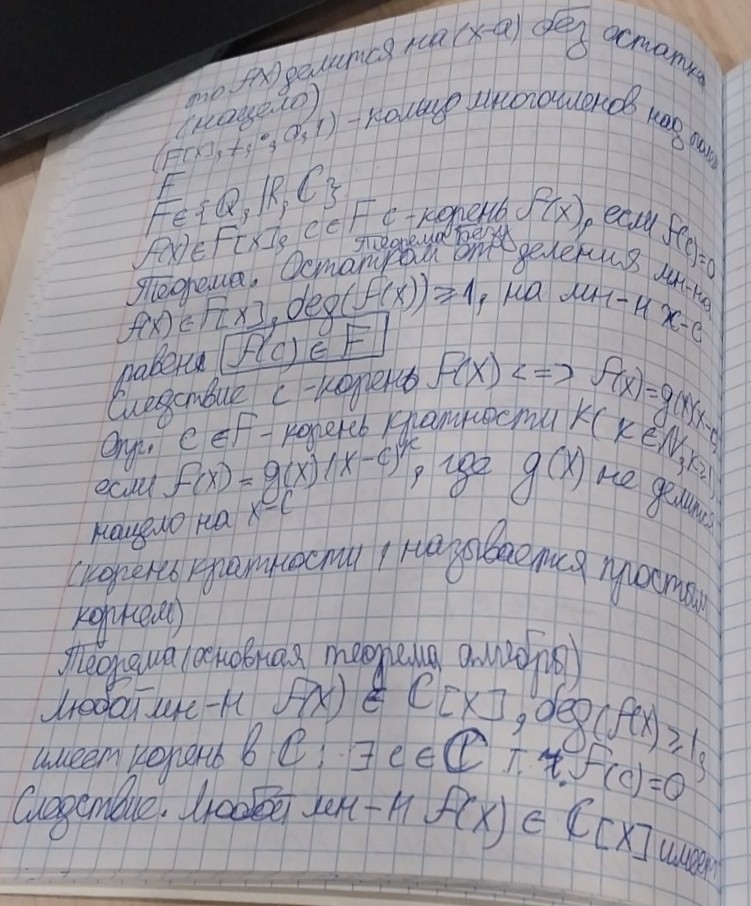 то f(x) делится на (x-a) без остатка
(нацело)
(F[x], +, •, 0, 1) - кольцо многочленов над полем
F
F ∈ {Q, R, C}
f(x) ∈ F[x], c ∈ F c - корень f(x), если f(c)=0
Теорема Безу
Теорема. Остатком от деления мн-на
f(x) ∈ F[x], deg(f(x)) ≥ 1, на мн-н x-c
равен f(c) ∈ F
Следствие c - корень f(x) <=> f(x)=g(x)(x-c)
Опр. c ∈ F - корень кратности k (k ∈ N, k≥1)
если f(x) = g(x)(x-c)^k, где g(x) не делится
нацело на x-c
(корень кратности 1 называется простым
корнем)
Теорема (основная теорема алгебры)
Любой мн-н f(x) ∈ C[x], deg(f(x) ≥ 1,
имеет корень в C: ∃ c ∈ C т.ч. f(c)=0
Следствие. Любой мн-н f(x) ∈ C[x] имеет